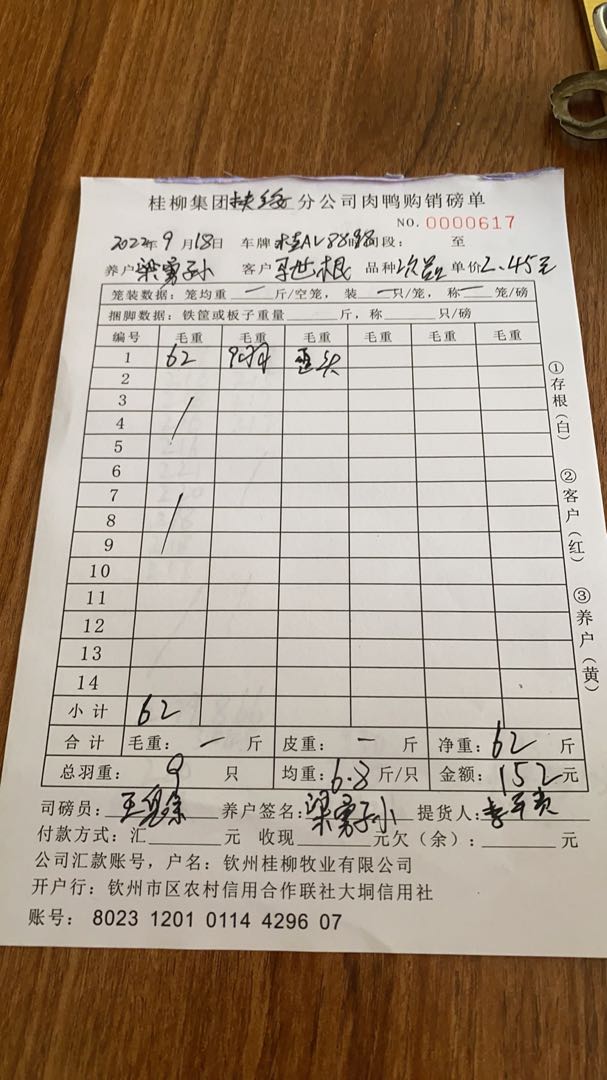 桂柳集团扶绥分公司肉鸭购销磅单
NO. 0000617
2022年9月18日 车牌 桂AV88 时段： 至
养户 梁勇孙 客户 根 品种 次品 单价2.45元
笼装数据：笼均重 一 斤/空笼，装 一 只/笼，称 一 笼/磅
捆脚数据：铁筐或板子重量 斤，称 只/磅
编号 毛重 毛重 毛重 毛重 毛重 毛重
1 62 9只 歪头
2
3
4
5
6
7
8
9
10
11
12
13
14
小计 62
合计 毛重：一 斤 皮重：一 斤 净重：62 斤
总羽重：9 只 均重：6.8斤/只 金额：152元
司磅员：王 养户签名：梁勇孙 提货人：李
付款方式：汇 元 收现 元欠（余）： 元
公司汇款账号，户名：钦州桂柳牧业有限公司
开户行：钦州市区农村信用合作联社大垌信用社
账号：8023 1201 0114 4296 07
①存根（白）
②客户（红）
③养户（黄）